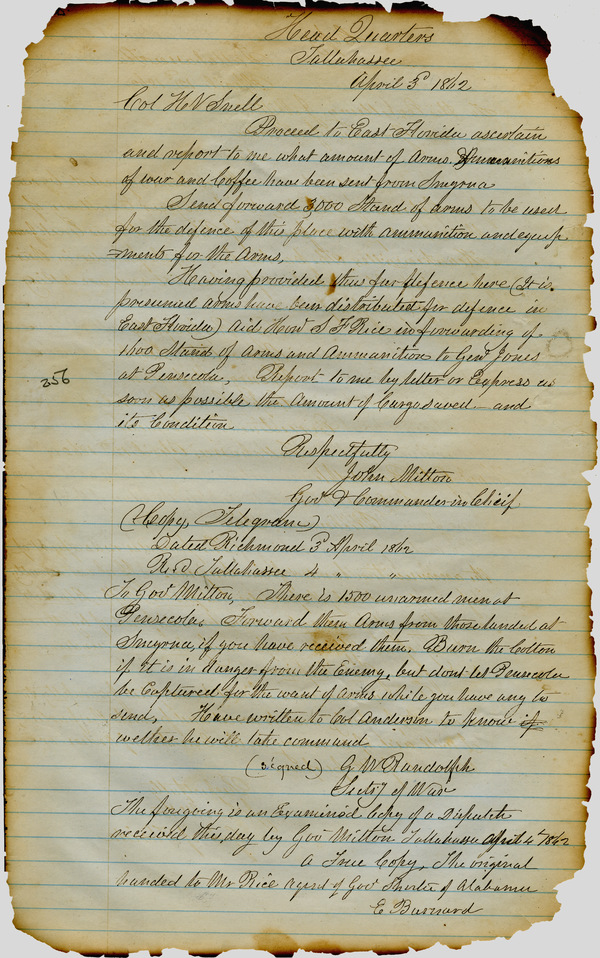 Head Quarters
Tallahassee
April 5th 1862
Col H V Snell
Proceed to East Florida ascertain
and report to me what amount of Arms, Amunitions
of war and Coffee have been sent from Smyrna
Send forward 3000 Stand of arms to be used
for the defence of this place with ammunition and equip
=ments for the Arms,
Having provided thus for defence here (It is
presumed arms have been distributed for defence in
East Florida) Aid Honl S F Rice in forwarding of
1600 Stands of Arms and Ammunition to Genl Jones
at Pensecola, Report to me by letter or Express as
soon as possible the Amount of Cargo saved - and
its Condition
356
Respectfully
John Milton
Gov & Commander in Chief
(Copy, Telegram)
Dated Richmond 3d April 1862
Recd Tallahassee 4 " "
To Gov Milton, There is 1500 unarmed men at
Pensecola, Forward them Arms from those landed at
Smyrna, if you have received them, Burn the Cotton
if it is in danger from the Enemy, but dont let Pensecola
be Captured for the want of Arms while you have any to
send, Have written to Col Anderson to know if
wether he will take command
(signed) G W Randolph
Secty of War
The foregoing is an Examined Copy of a Dispatch
received this day by Gov Milton Tallahassee April 4th 1862
a True Copy, The original
handed to Mr Rice Agent of Gov Shorter of Alabama
E Barnard